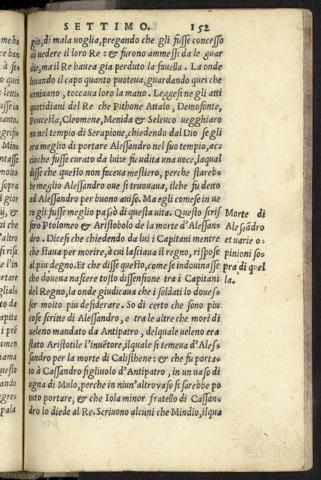 SETTIMO. 152
gio, di mala uoglia, pregando che gli fusse concesso
di uedere il loro Re: & furono ammessi da le guar
die, ma il Re hauea gia perduto la fauella. La onde
leuando il capo quanto puoteua, guardando quei che
ueniuano, toccaua loro la mano. Leggesi ne gli atti
quotidiani del Re che Pithone Attalo, Demofonte,
Peucesta, Cleomene, Menida & Seleuco uegghiaro
no nel tempio di Serapione, chiedendo dal Dio se gli
era meglio di portare Alessandro nel suo tempio, ac
cioche fusse curato da lui: e fu udita una uoce, la qual
disse che questo non faceua mestiero, perche starebbe
meglio Alessandro oue si trouaua, il che fu detto
ad Alessandro per buono auiso. Ma egli come se in ue
ro gli fusse meglio passò di questa uita. Questo scris
sero Ptolomeo & Aristobolo de la morte d'Alessan-
dro. Dicesi che chiedendo da lui i Capitani mentre
che staua per morire, à cui lasciaua il regno, rispose
al piu degno. Et che disse questo, come se indouinasse
che doueua nascere tosto dissensione tra i Capitani
del Regno, la onde giudicaua che i soldati lo doues-
ser molto piu desiderare. So di certo che sono piu
cose scritte di Alessandro, e tra le altre che morì di
ueleno mandato da Antipatro, del quale ueleno era
stato Aristotile l'inuẽtore, il quale si temeua d'Ales-
sandro per la morte di Calisthene: & che fu porta-
to à Cassandro figliuolo d'Antipatro, in un uaso di
ugna di Mulo, perche in niun'altro uaso si sarebbe po
tuto portare, & che Iola minor fratello di Cassan-
dro lo diede al Re. Scriuono alcuni che Mindio, il qua
Morte di
Alesãdro
et uarie o-
pinioni so-
pra di quel
la.